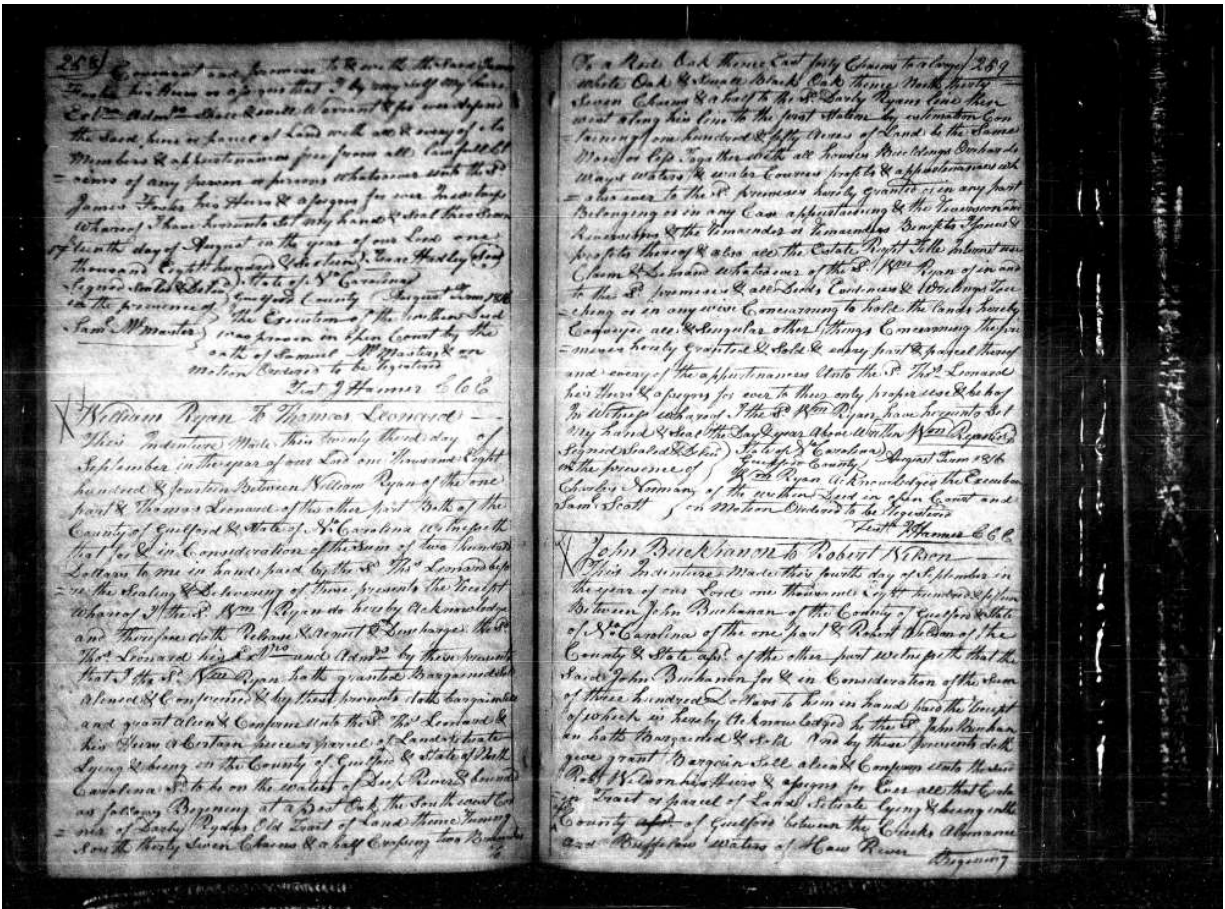 258
Covenant and promise to & with the said James
Foster his Heirs or assigns that I by my self my heirs
Exrs Admrs Shall & will Warrant & for ever defend
the Said piece or parcel of Land with all & every of its
Members & appurtenances free from all lawfull Cl
= aims of any person or persons whatsoever unto the Sd
James his Heirs & assigns for ever In testimony
Whereof I have hereunto Set my hand & Seal this Seven
17 teenth day of August in the year of our Lord one
thousand Eight hundred & Isaac Hadley Seal
Signed Sealed & Delivd State of No Carolina
in the presence of Guilford County August Term 1816
Sam McMaster The Execution of the written Deed
was proven in open Court by the
oath of Samuel McMasters & on
motion Ordered to be registered
Test J Hanner C C C
X William Ryan To Thomas Leonard
This Indenture Made this twenty third day of
September in the year of our Lord one thousand Eight
hundred & fourteen Between William Ryan of the one
part & Thomas Leonard of the other part Both of the
County of Guilford & State of No Carolina witnesseth
that for & in Consideration of the Sum of two hundred
Dollars to me in hand paid by the Sd Thos Leonard befo
re the Sealing & Delivering of these presents the Receipt
Whareof I the Sd Wm Ryan do hereby Acknowledge
and therefore doth Release & Discharge the Sd
Thos Leonard his Exrs and Admrs by these presents
that I the Sd Wm Ryan hath granted Bargained Sold
Aliened & Confermed & by these presents doth bargain Sell
and grant alien & Conferm unto the Sd Thos Leonard &
his Heirs a Certain piece or parcel of Land Situate
Lying & being in the County of Guilford & State of North
Carolina Sd to be on the waters of Deep River & bound
as follows Begining at a Post Oak the South west Cor
= ner of Darby Ryans Old Tract of Land thence Runing
South thirty Seven Chains & a half Crossing two Branches
to
To a Red Oak thence East forty Chains to a 259
White Oak & Small Black Oak thence North thirty
Seven Chains & a half to the Sd Darby Ryans line then
west along his line to the first Station by estimation Con
taining one hundred & fifty Acres of Land be the Same
More or less Together with all houses Buildings Orchards
Ways Waters & water Courses profits & appurtenances wh
= atsoever to the Sd premises hereby granted or in any part
Belonging or in any Case appertaining & the reversion or
Reversions & the Remainder or Remainders Benefits Issues &
profits thereof & also all the Estate Right Title Interest
Claim & Demand whatsoever of the Sd Wm Ryan of in and
to the Sd premises & all Deeds Evidences & Writings Tou
ching or in any wise Concearning to hold the lands hereby
all & Singular other things Concerning the pre
= mises hereby granted & Sold & every part & parcel thereof
and every of the appurtenances Unto the Sd Thos Leonard
his Heirs & assigns for ever to their only proper use & behoof
In Witness whareof I the Sd Wm Ryan have hereunto Set
My hand & Seal the Day & year Above Written Wm Ryan
Signed Sealed & Delivd State of No Carolina
in the presence of Guilford County August Term 1816
Charles Norman Wm Ryan Acknowledges the Execution
Sam Scott of the written Deed in open Court and
on Motion Ordered to be registered
Test J Hanner C C C
X John Buckhanon to Robert Wilson
This Indenture Made this fourth day of September in
the year of our Lord one thousand Eight hundred &
Between John Buchanan of the County of Guilford & State
of No Carolina of the one part & Robert Wilson of the
County & State afsd of the other part witnesseth that the
Said John Buchanon for & in Consideration of the Sum
of three hundred Dollars to him in hand paid the Receipt
of which is hereby Acknowledged he the Sd John Buchan
an hath Bargained & Sold And by these presents doth
give grant Bargain Sell alien & Conferm unto the said
Robt Wilson his Heirs & assigns for Ever all that Certain
Tract or parcel of Land Situate lying & being in the
County of Guilford between the Creeks Alamance
and Buffelow waters of Haw River
Begining